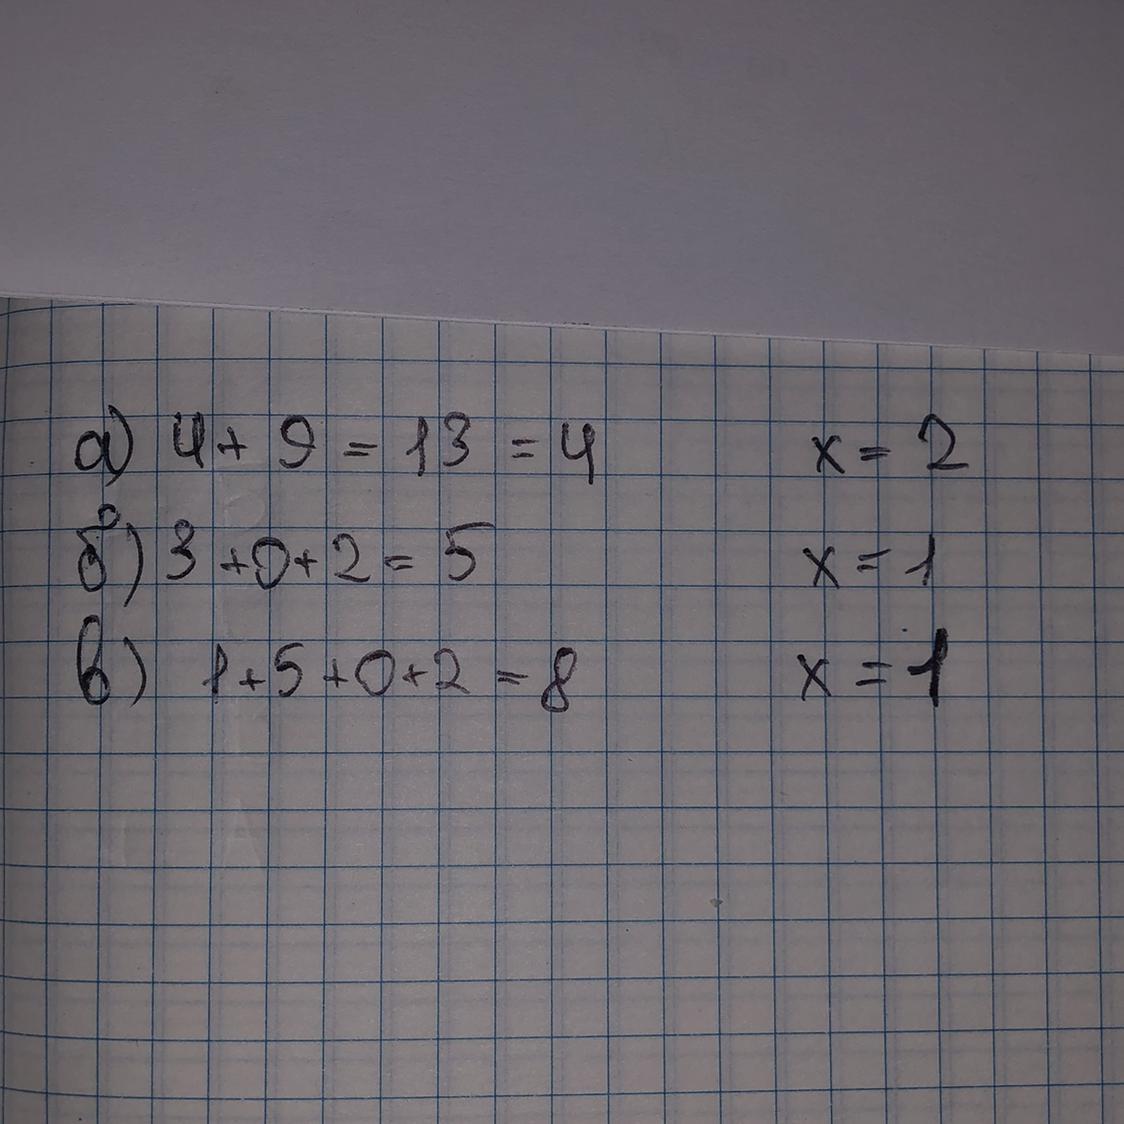 а) 4 + 9 = 13 = 4 x = 2
б) 3 + 0 + 2 = 5 x = 1
в) 1 + 5 + 0 + 2 = 8 x = 1